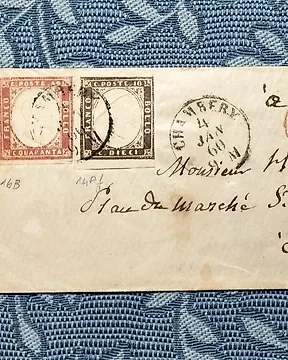 C. POSTE 40
FRANCO
BOLLO
C. QUARANTA
C. POSTE 10
FRANCO
BOLLO
C. DIECI
CHAMBERY
4
JAN
60
S. M
à
16B
14A
Monsieur
Place du Marché S